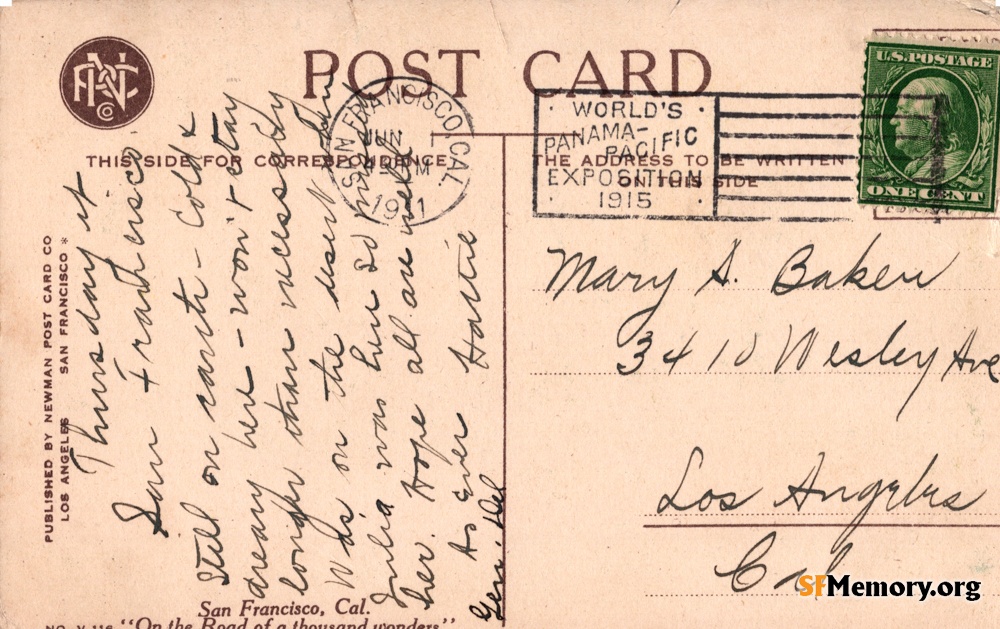 POST CARD
THIS SIDE FOR CORRESPONDENCE
THE ADDRESS TO BE WRITTEN
ON THIS SIDE
PUBLISHED BY NEWMAN POST CARD CO
LOS ANGELES SAN FRANCISCO
SAN FRANCISCO, CAL.
JUN 1
PM
1911
WORLD'S
PANAMA-
PACIFIC
EXPOSITION
1915
U.S. POSTAGE
ONE CENT
Thursday
San Francisco
Still on earth - Cold &
dreary here - won't stay
longer than necessary
Was on the desert
Julia was here so
her. Hope all are well
As Ever Hattie
Gen. Del
Mary A. Baker
3410 Wesley Ave
Los Angeles
Cal
San Francisco, Cal.
"On the Road of a thousand wonders"
SFMemory.org